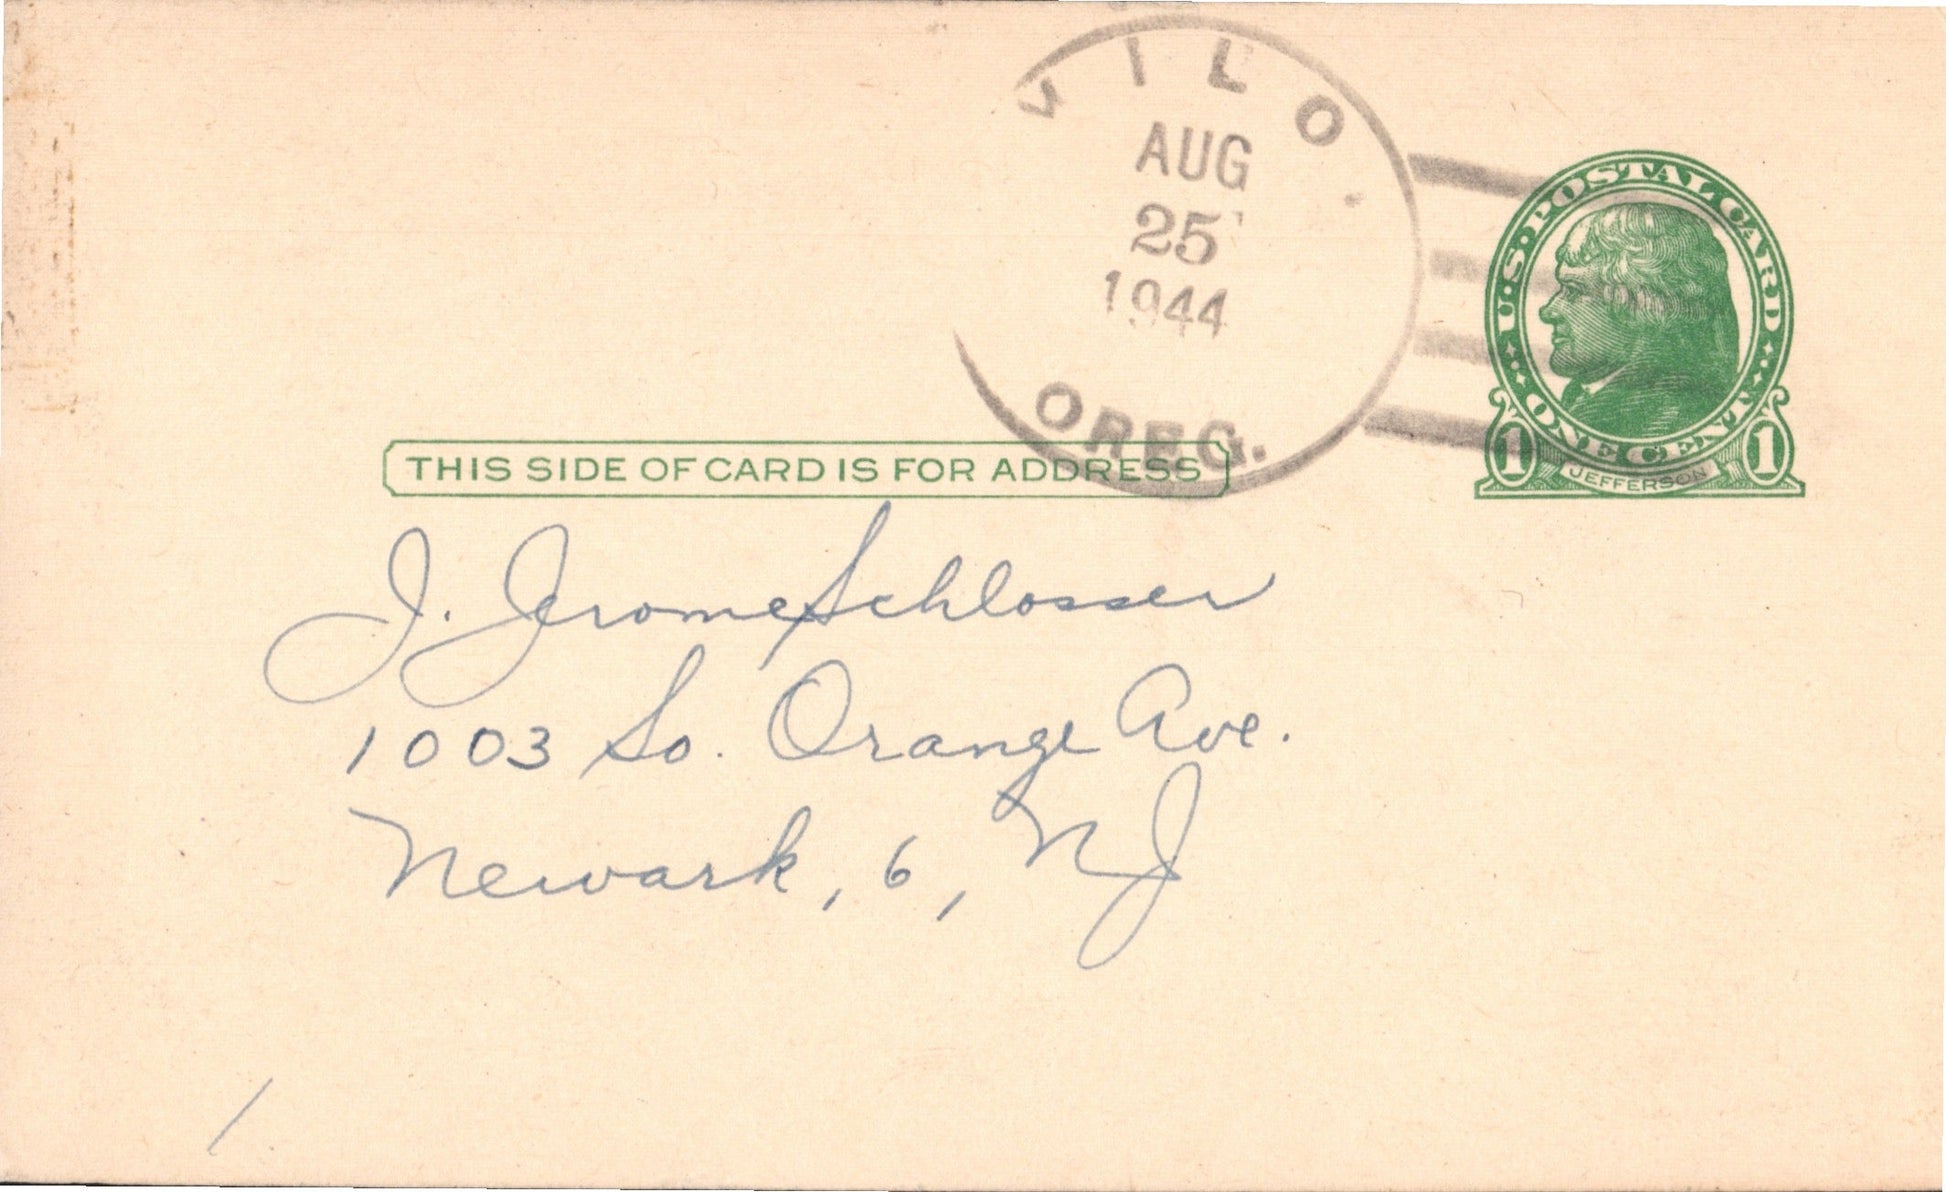 MILO.
AUG
25
1944
OREG.
U.S. POSTAL CARD
ONE CENT
1 JEFFERSON 1
THIS SIDE OF CARD IS FOR ADDRESS
J. Jerome Schlosser
1003 So. Orange Ave.
Newark, 6, NJ